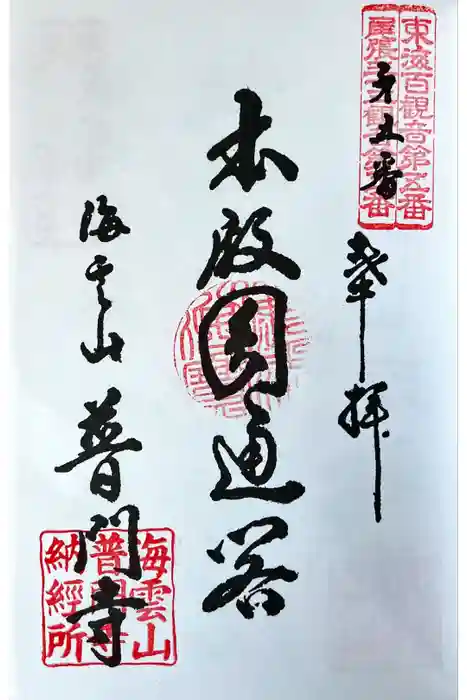 東海百觀音第五番
尾張三十三觀音第五番
第五番
奉拝
本殿圓通閣
海雲山 普門寺
海雲山
普門寺
納經所